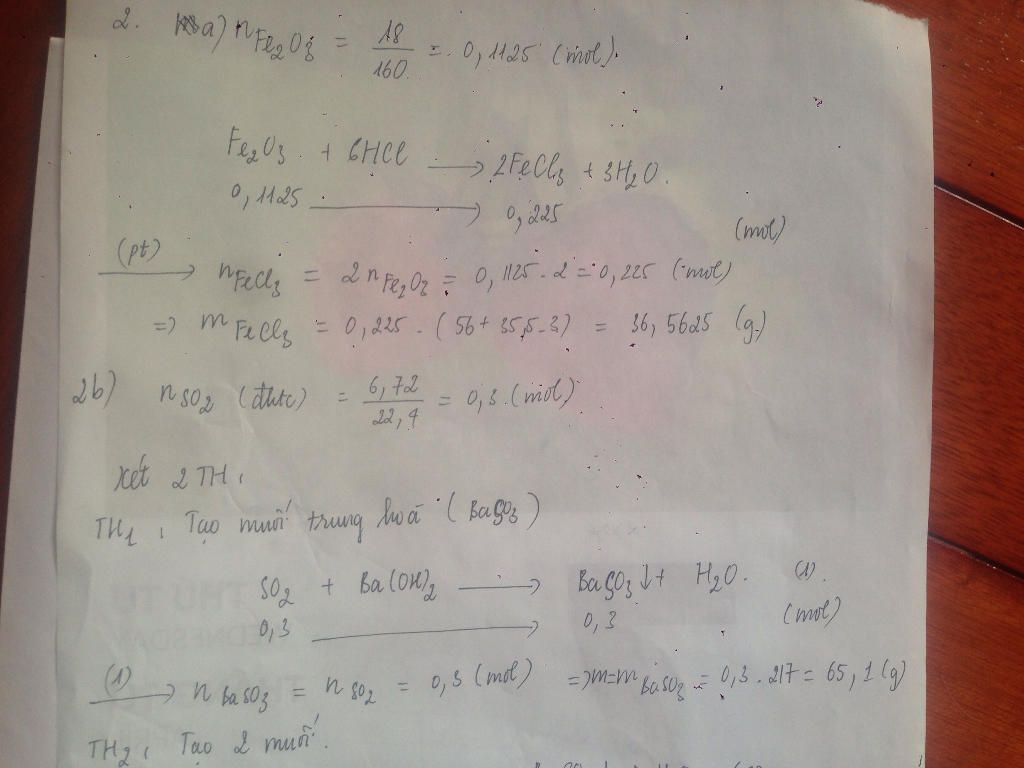 2. a) nFe2O3 = 18/160 = 0,1125 (mol).
Fe2O3 + 6HCl → 2FeCl3 + 3H2O.
0,1125 → 0,225 (mol)
(pt) → nFeCl3 = 2nFe2O3 = 0,1125.2 = 0,225 (mol)
=> mFeCl3 = 0,225.(56+35,5.3) = 36,5625 (g)
2b) nSO2 (đktc) = 6,72/22,4 = 0,3 (mol)
Xét 2 TH:
TH1: Tạo muối trung hoà (BaSO3)
SO2 + Ba(OH)2 → BaSO3↓ + H2O. (1).
0,3 → 0,3 (mol)
(1) → nBaSO3 = nSO2 = 0,3 (mol) => m = mBaSO3 = 0,3.217 = 65,1 (g)
TH2: Tạo 2 muối.